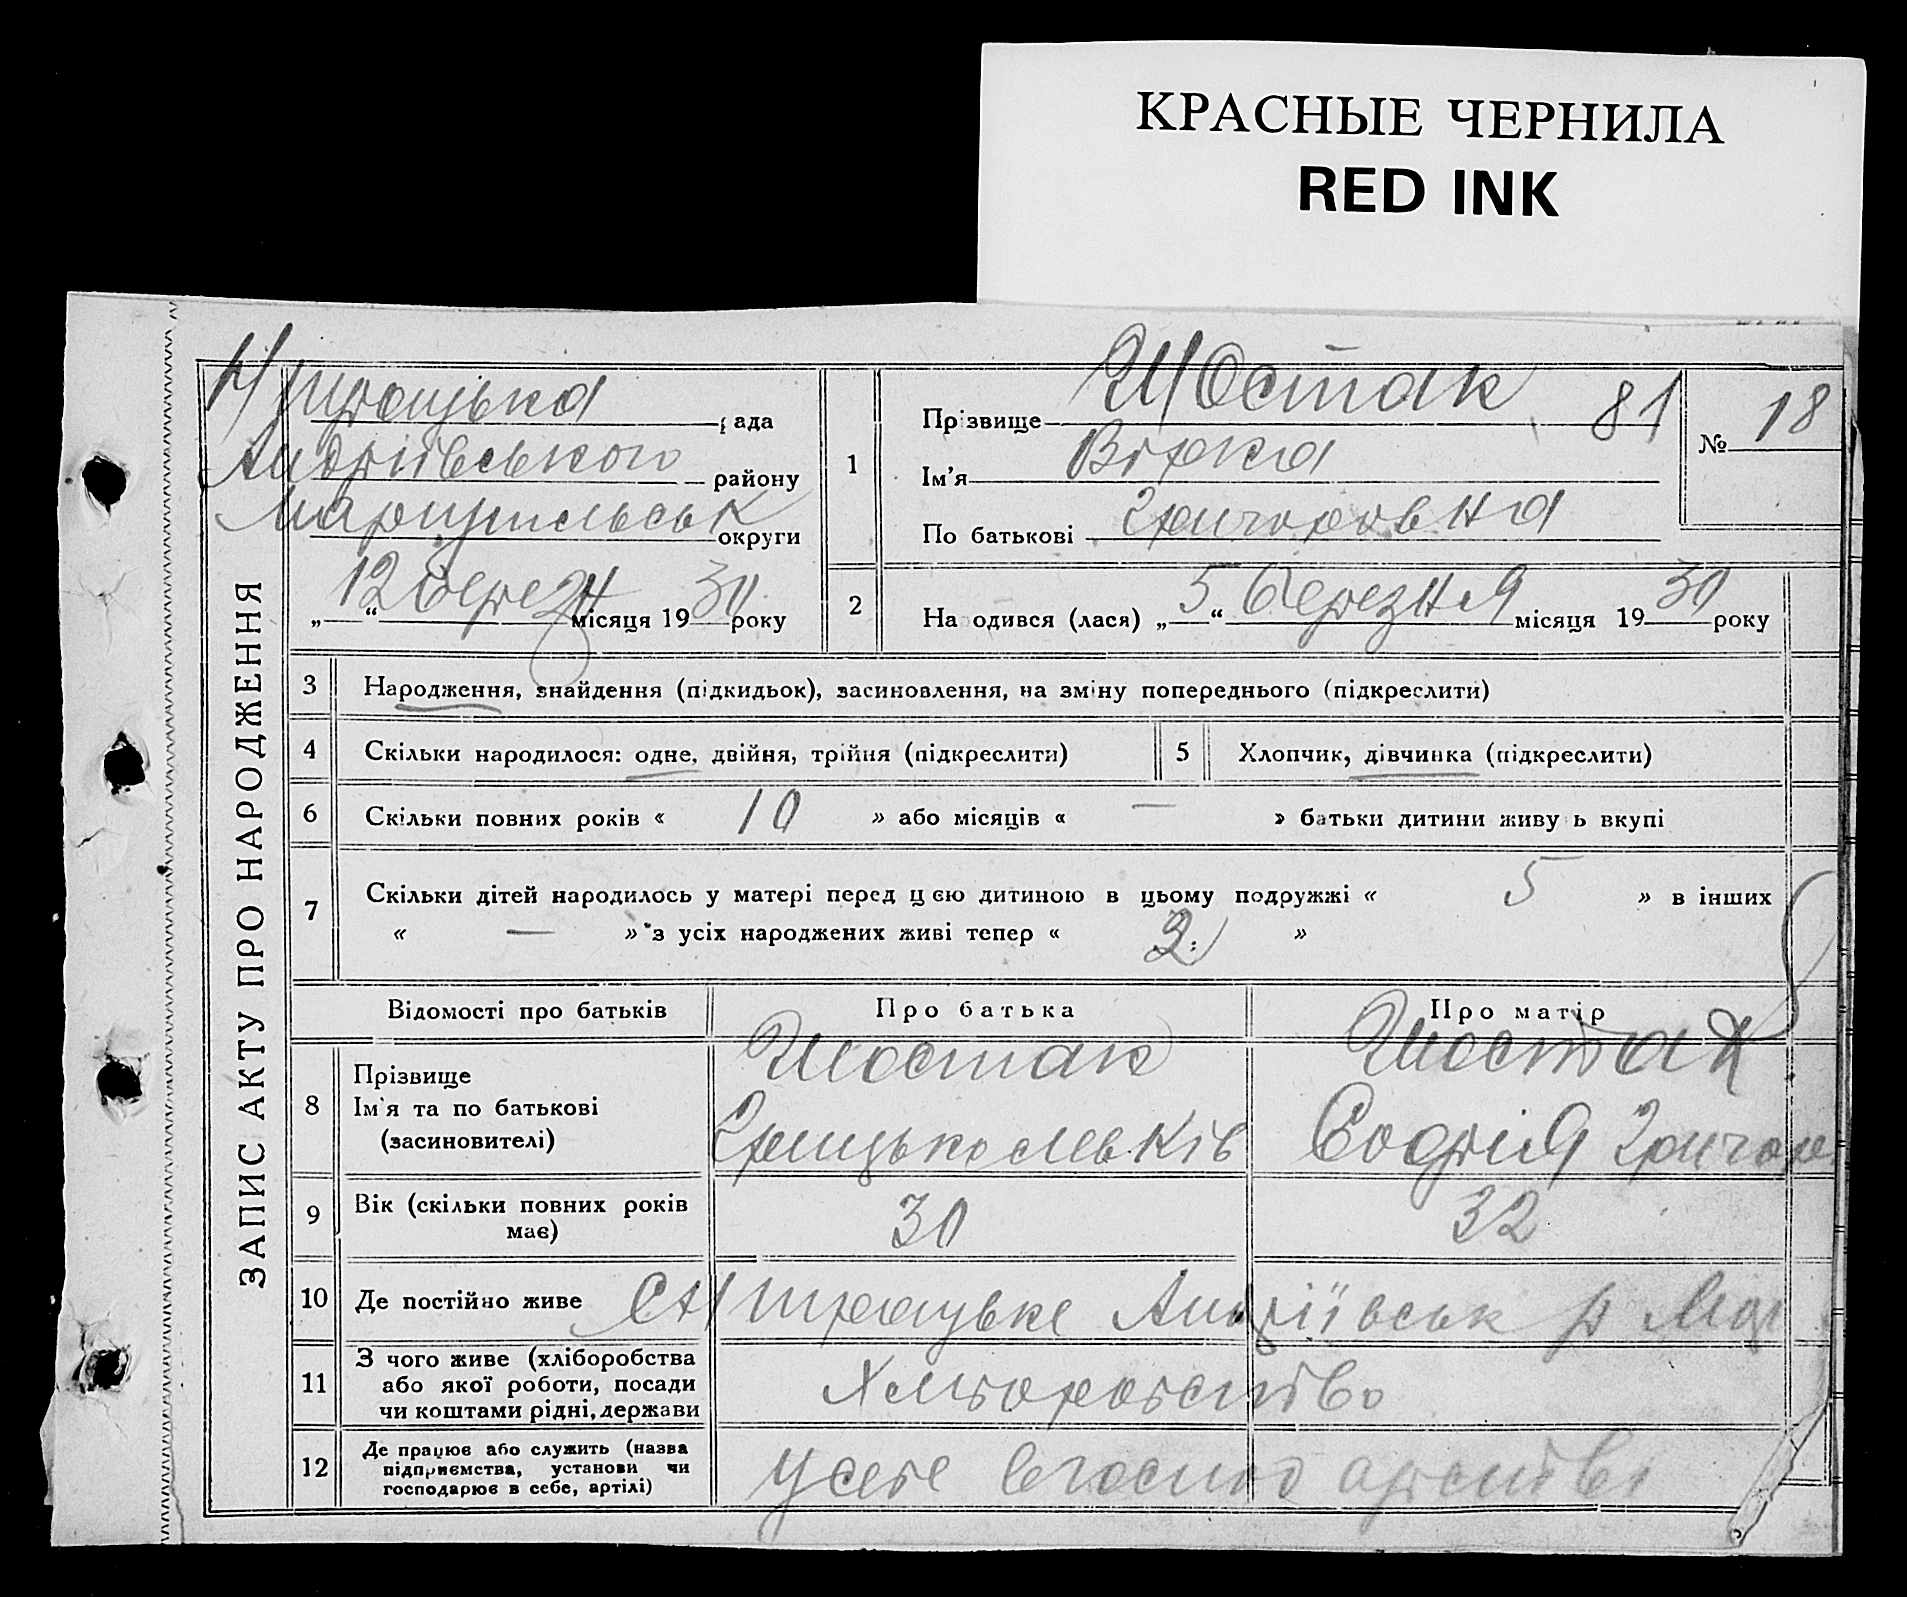 КРАСНЫЕ ЧЕРНИЛА
RED INK
ЗАПИС АКТУ ПРО НАРОДЖЕННЯ
рада
Андріївського району
Маріупільськ округи
„12“ березн місяця 1930 року
1
Прізвище Шостак 81
Ім’я Вірка
По батькові Григоровна
№ 18
2 Народився (лася) „5“ березня місяця 1930 року
3 Народження, знайдення (підкидьок), засиновлення, на зміну попереднього (підкреслити)
4 Скільки народилося: одне, двійня, трійня (підкреслити) 5 Хлопчик, дівчинка (підкреслити)
6 Скільки повних років « 10 » або місяців « — » батьки дитини живуть вкупі
7 Скільки дітей народилось у матері перед цією дитиною в цьому подружжі « 5 » в інших
« — » з усіх народжених живі тепер « »
Відомості про батьків Про батька Про матір
8 Прізвище Шостак Шостак
Ім’я та по батькові Грицько Левків Софія Григор
(засиновителі)
9 Вік (скільки повних років має) 30 32
10 Де постійно живе Андріївськ р Мар
11 З чого живе (хліборобства
або якої роботи, посади Хліборобство
чи коштами рідні, держави
12 Де працює або служить (назва
підприємства, установи чи У себе в господарстві
господарює в себе, артілі)